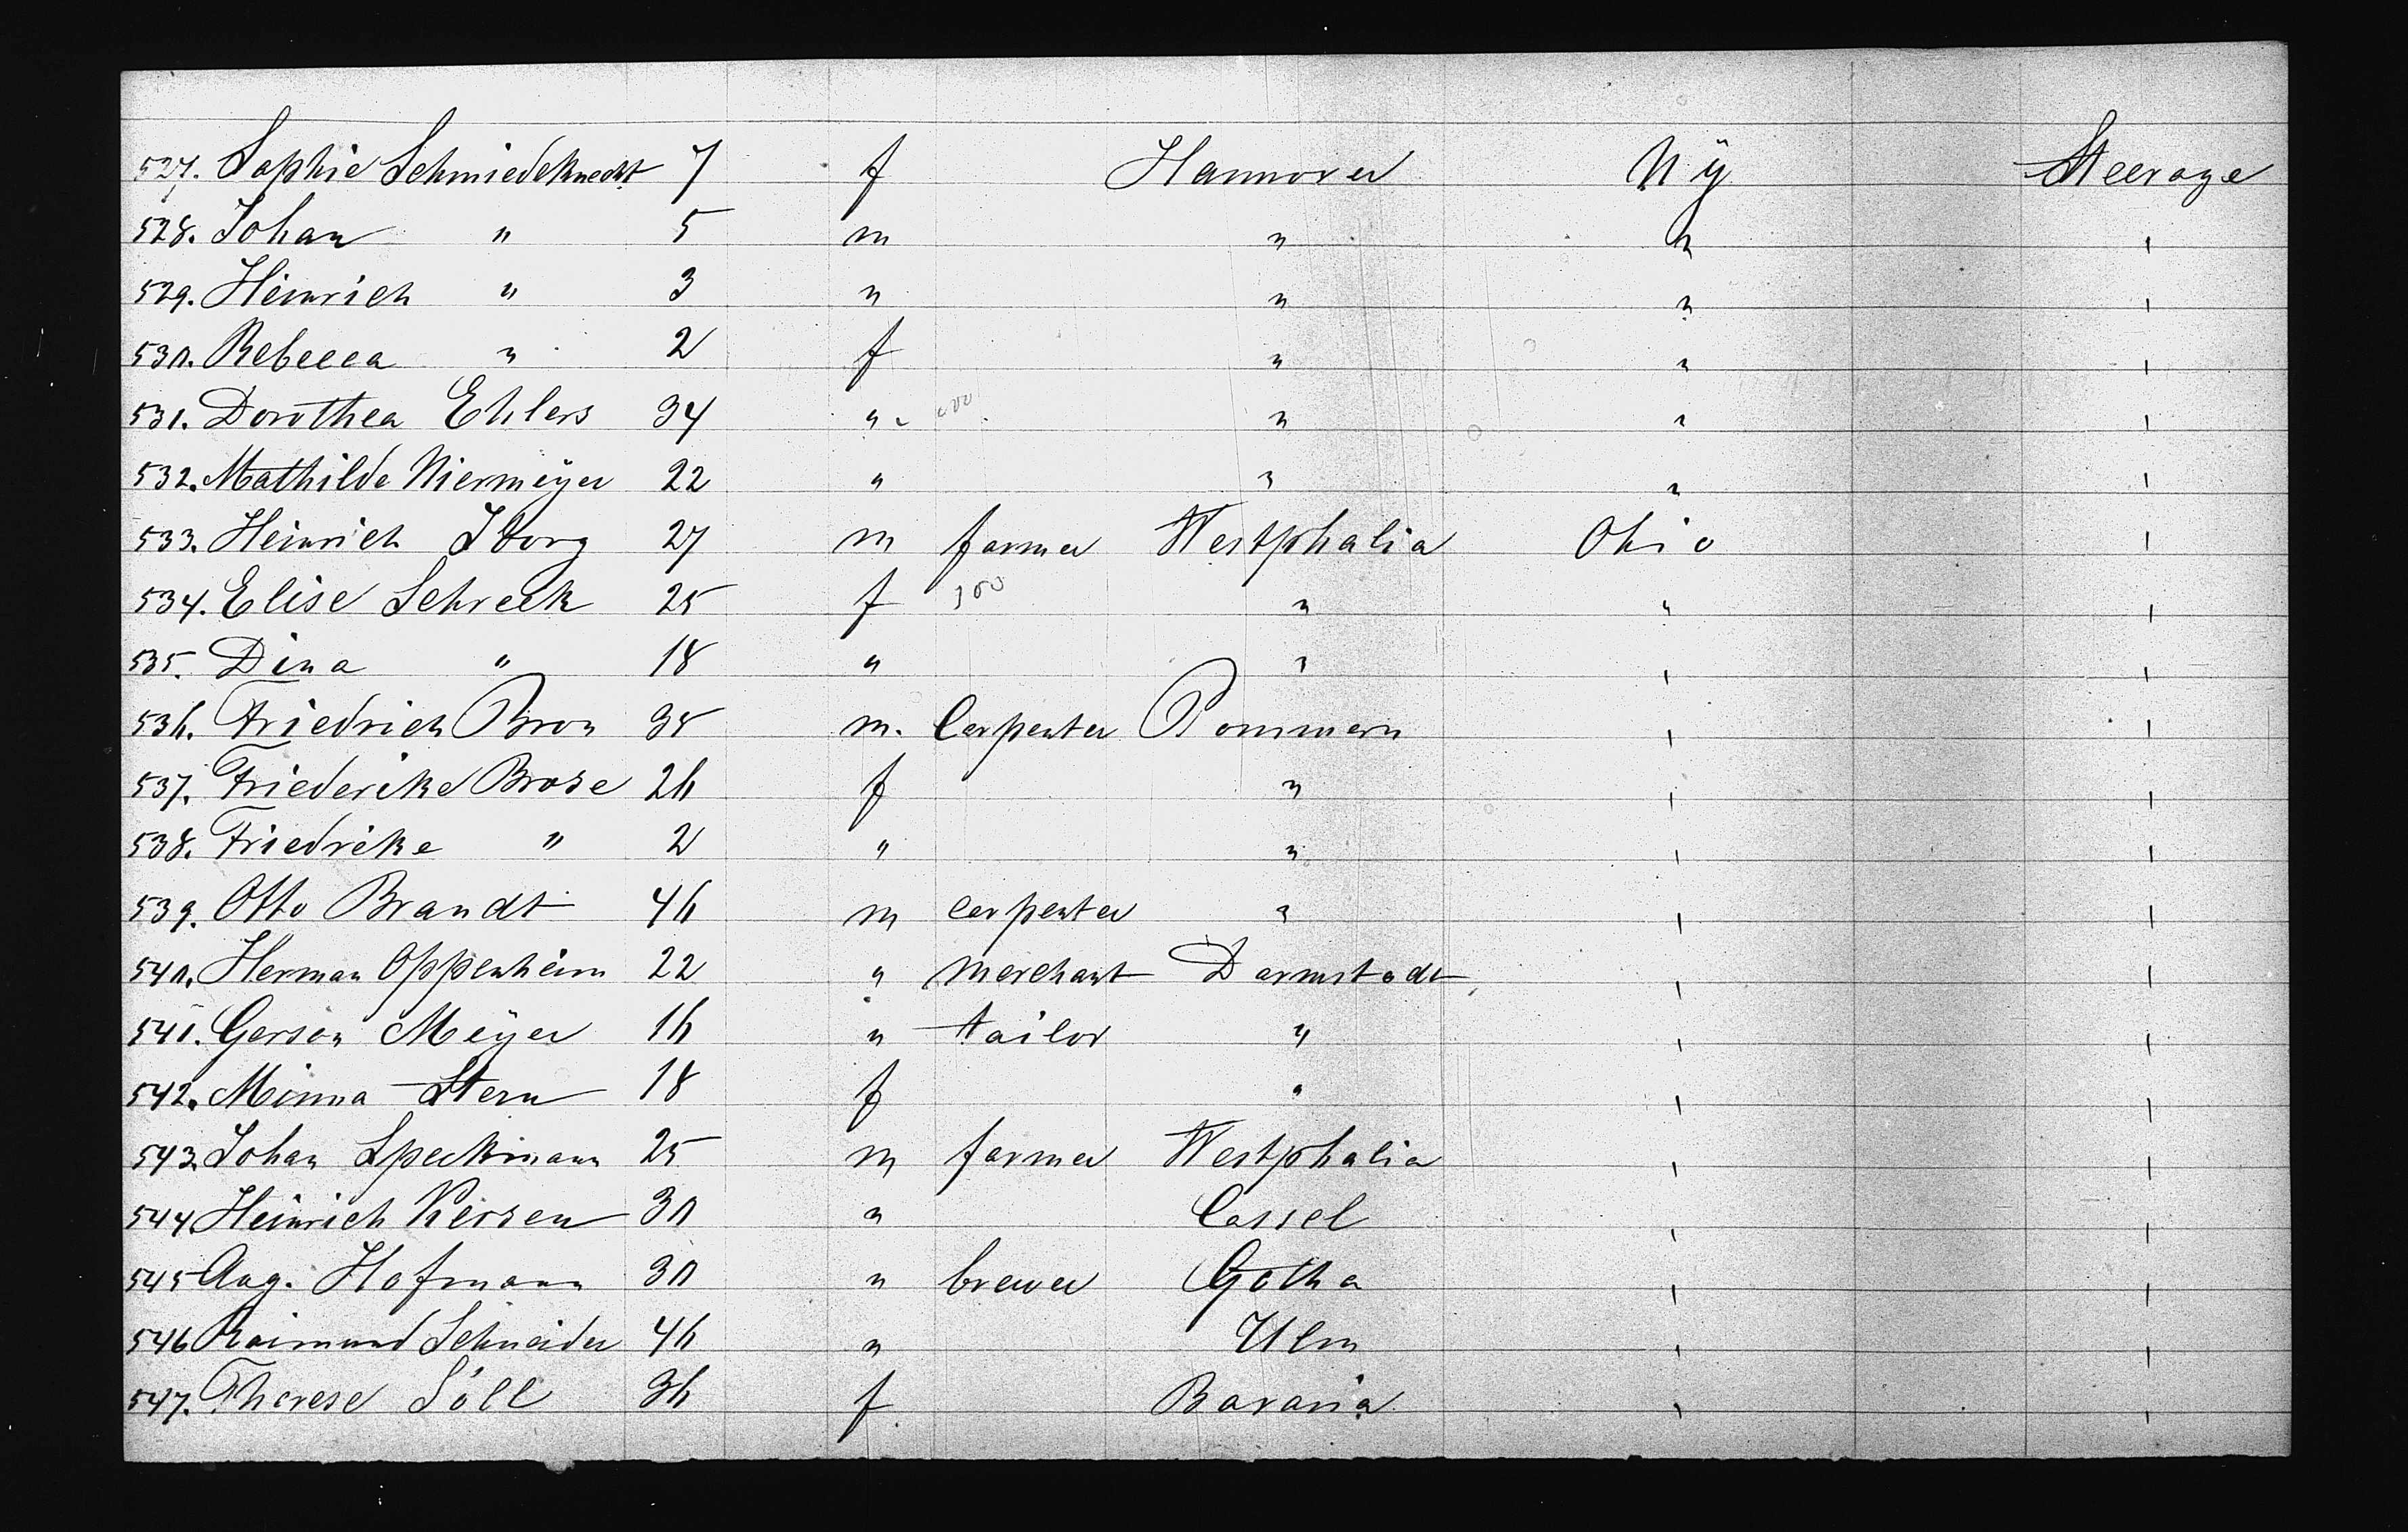 527. Sophie Schmiedeknecht 7 f Hannover NY Steerage
528. Johan " 5 m " " "
529. Heinrich " 3 " " " "
530. Rebecca " 2 f " " "
531. Dorothea Ehlers 34 " " " "
532. Mathilde Niermeÿer 22 " " " "
533. Heinrich Iborg 27 m farmer Westphalia Ohio "
534. Elise Schreck 25 f 300 " " "
535. Dina " 18 " " " "
536. Friedrich Bron 35 m. Carpenter Pommern " "
537. Friederike Brose 26 f " " "
538. Friedrike " 2 " " " "
539. Otto Brandt 46 m carpenter " " "
540. Herman Oppenheim 22 " merchant Darmstadt " "
541. Gerson Meÿer 16 " tailor " " "
542. Minna Stern 18 f " " "
543. Johan Speckmann 25 m farmer Westphalia " "
544 Heinrich Kersen 30 " Cassel " "
545 Aug. Hofmann 30 " brewer Gotha " "
546 Raimund Schneider 46 " Ulm " "
547. Therese Söll 36 f Bavaria " "